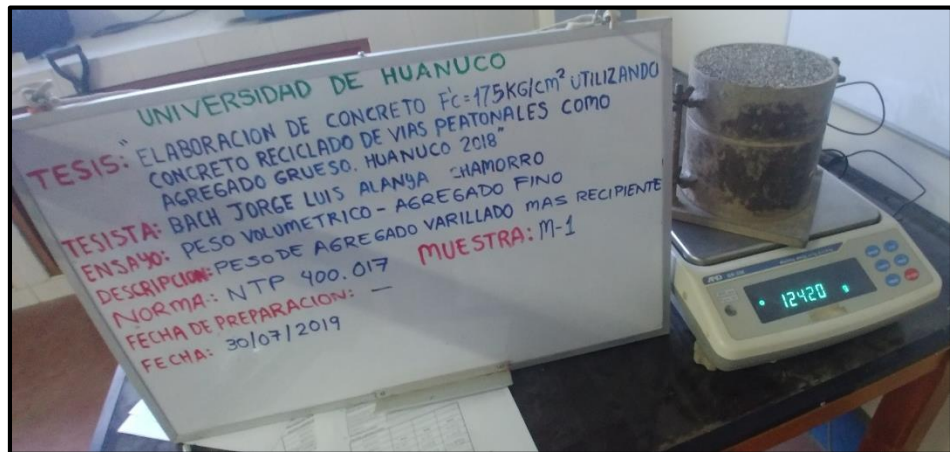 UNIVERSIDAD DE HUANUCO
TESIS: "ELABORACION DE CONCRETO F'C=175KG/CM² UTILIZANDO
CONCRETO RECICLADO DE VIAS PEATONALES COMO
AGREGADO GRUESO. HUANUCO 2018"
TESISTA: BACH JORGE LUIS ALANYA CHAMORRO
ENSAYO: PESO VOLUMETRICO - AGREGADO FINO
DESCRIPCION: PESO DE AGREGADO VARILLADO MAS RECIPIENTE
NORMA: NTP 400.017 MUESTRA: M-1
FECHA DE PREPARACION: —
FECHA: 30/07/2019
AND
12420